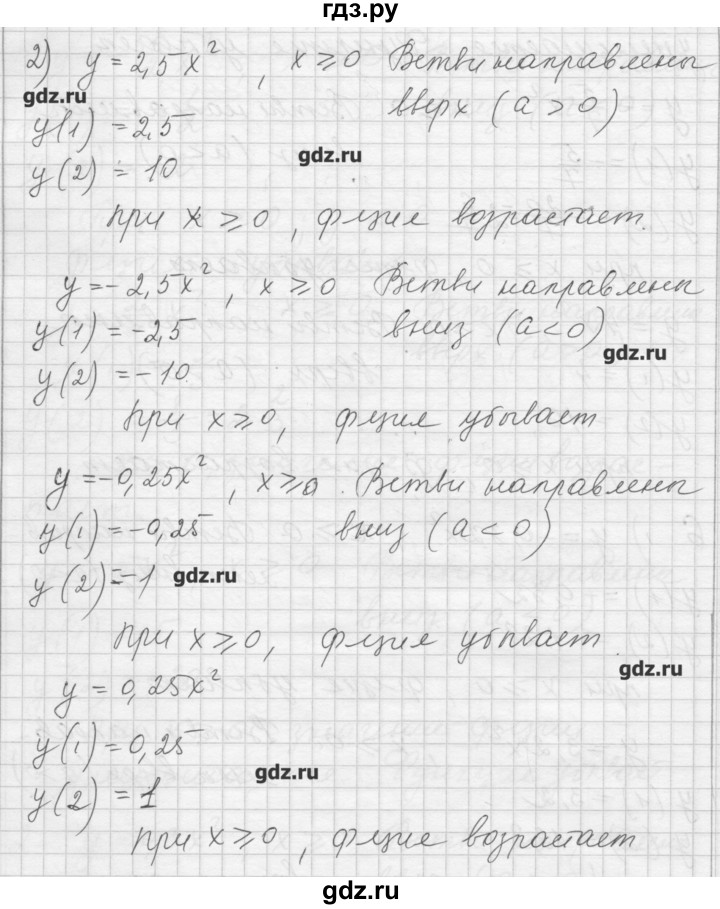 гдз.ру
2) y = 2,5x², x ⩾ 0 Ветви направлены
gdz.ru вверх (a > 0)
y(1) = 2,5
gdz.ru
y(2) = 10
при x ⩾ 0, фция возрастает.
y = -2,5x², x ⩾ 0 Ветви направлены
y(1) = -2,5 вниз (a < 0)
gdz.ru
y(2) = -10
При x ⩾ 0, фция убывает
y = -0,25x², x ⩾ 0. Ветви направлены
y(1) = -0,25 вниз (a < 0)
y(2) = -1 gdz.ru
при x ⩾ 0, фция убывает
gdz.ru
y = 0,25x²
y(1) = 0,25
gdz.ru
y(2) = 1
при x ⩾ 0, фция возрастает
gdz.ru